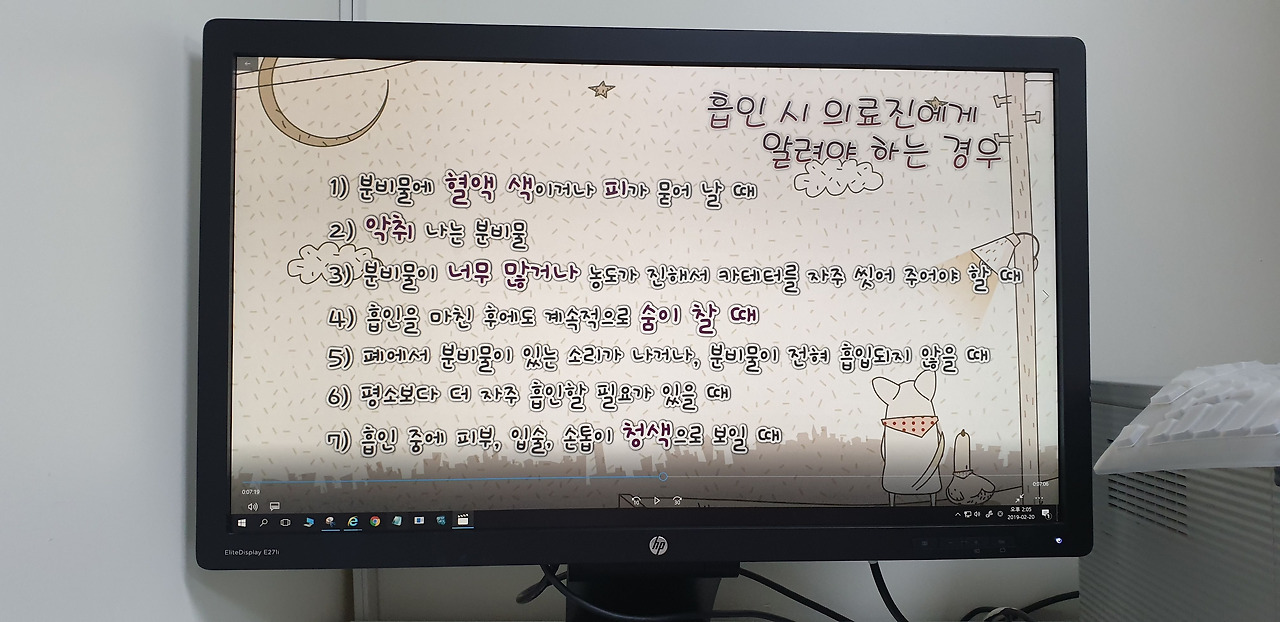 흡인 시 의료진에게
알려야 하는 경우
1) 분비물에 혈액 색이거나 피가 묻어 날 때
2) 악취 나는 분비물
3) 분비물이 너무 많거나 농도가 진해서 카테터를 자주 씻어 주어야 할 때
4) 흡인을 마친 후에도 계속적으로 숨이 찰 때
5) 폐에서 분비물이 있는 소리가 나거나, 분비물이 전혀 흡입되지 않을 때
6) 평소보다 더 자주 흡인할 필요가 있을 때
7) 흡인 중에 피부, 입술, 손톱이 청색으로 보일 때
0:07:19
0:07:06
오후 2:05
2019-02-20
EliteDisplay E271i
hp